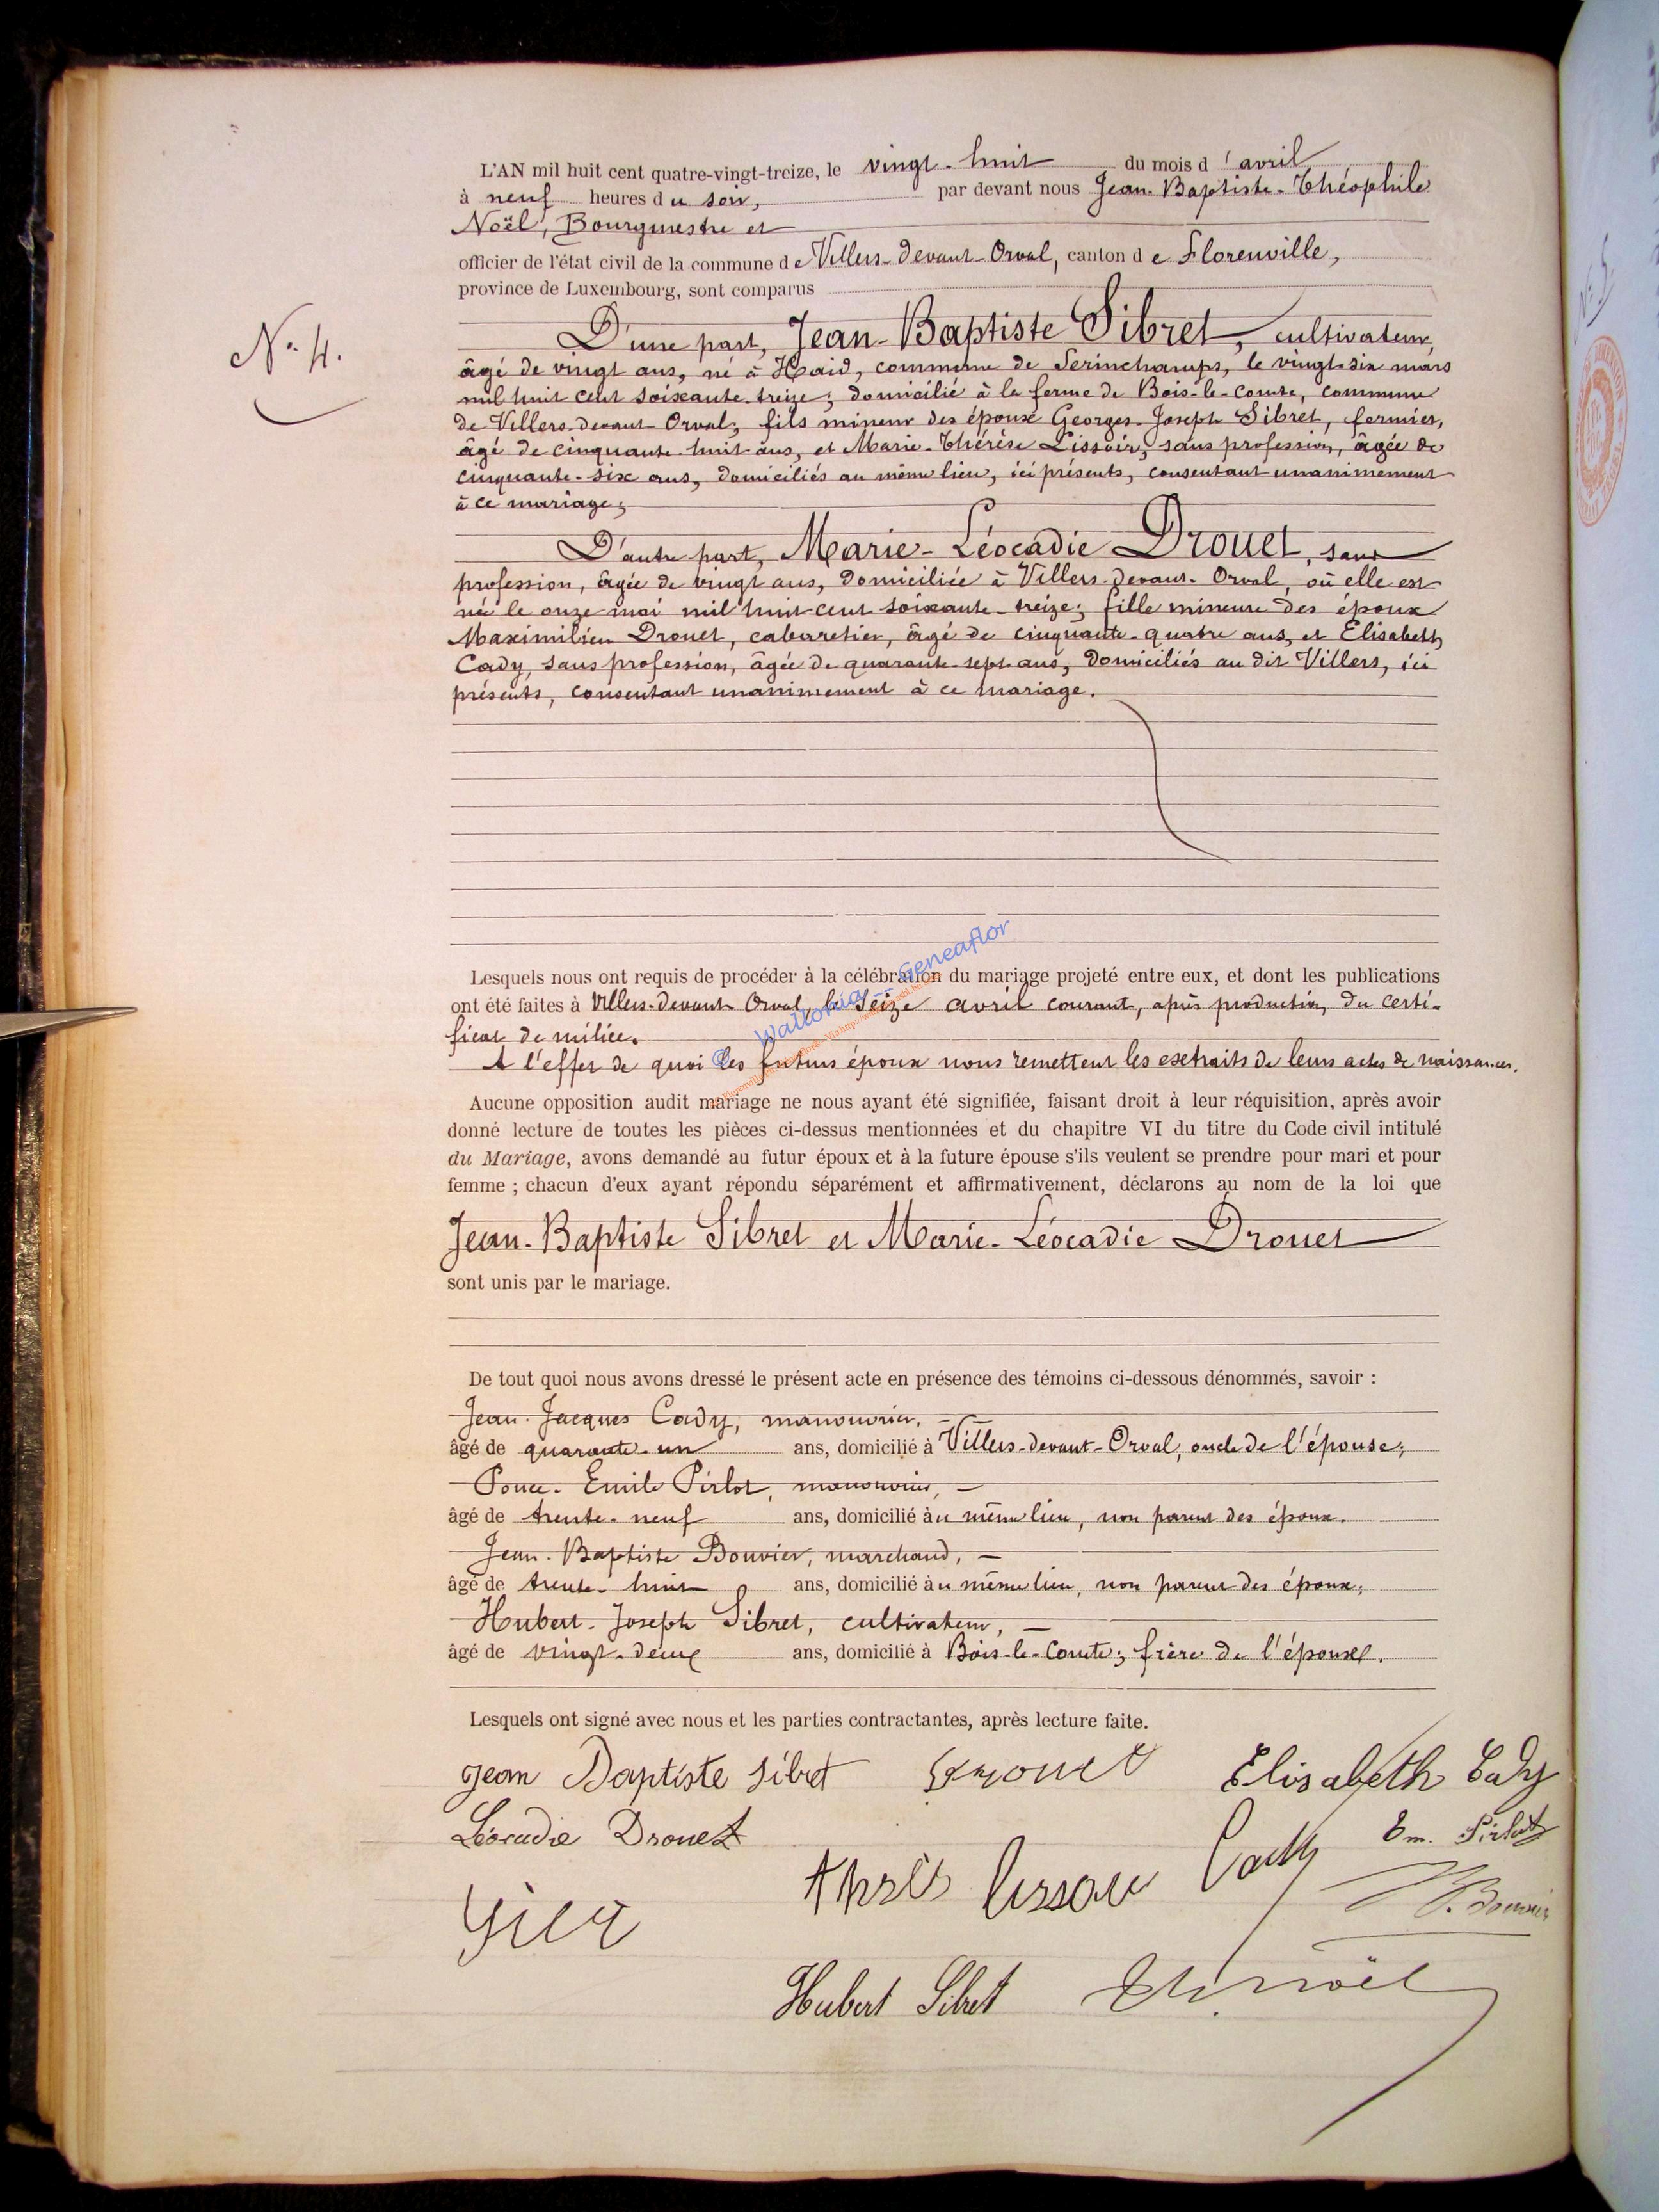 L'AN mil huit cent quatre-vingt-treize, le vingt-huit du mois d'avril
à neuf heures du soir, par devant nous Jean-Baptiste-Théophile
Noël, Bourgmestre et
officier de l'état civil de la commune de Villers-devant-Orval, canton de Florenville,
province de Luxembourg, sont comparus
N° 4.
D'une part, Jean-Baptiste Sibret, cultivateur,
âgé de vingt ans, né à Haid, commune de Serinchamps, le vingt-six mars
mil huit cent soixante-treize; domicilié à la ferme de Bois-le-Comte, commune
de Villers-devant-Orval; fils mineur des époux Georges-Joseph Sibret, fermier,
âgé de cinquante-huit ans, et Marie-Thérèse Lissoir, sans profession, âgée de
cinquante-six ans, domiciliés au même lieu, ici présents, consentant unanimement
à ce mariage;
D'autre part, Marie-Léocadie Drouet, sans
profession, âgée de vingt ans, domiciliée à Villers-devant-Orval, où elle est
née le onze mai mil huit cent soixante-treize; fille mineure des époux
Maximilien Drouet, cabaretier, âgé de cinquante-quatre ans, et Elisabeth
Cady, sans profession, âgée de quarante-sept ans, domiciliés au dit Villers, ici
présents, consentant unanimement à ce mariage.
Lesquels nous ont requis de procéder à la célébration du mariage projeté entre eux, et dont les publications
ont été faites à Villers-devant-Orval, le seize avril courant, après production du certi-
ficat de milice.
A l'effet de quoi les futurs époux nous remettent les extraits de leurs actes de naissances.
Wallonia - Geneaflor
Aucune opposition audit mariage ne nous ayant été signifiée, faisant droit à leur réquisition, après avoir
donné lecture de toutes les pièces ci-dessus mentionnées et du chapitre VI du titre du Code civil intitulé
du Mariage, avons demandé au futur époux et à la future épouse s'ils veulent se prendre pour mari et pour
femme ; chacun d'eux ayant répondu séparément et affirmativement, déclarons au nom de la loi que
Jean-Baptiste Sibret et Marie-Léocadie Drouet
sont unis par le mariage.
De tout quoi nous avons dressé le présent acte en présence des témoins ci-dessous dénommés, savoir :
Jean-Jacques Cady, manouvrier,
âgé de quarante-un ans, domicilié à Villers-devant-Orval, oncle de l'épouse;
Ponce-Emile Pirlot, manouvrier,
âgé de trente-neuf ans, domicilié au même lieu, non parent des époux.
Jean-Baptiste Bouvier, marchand,
âgé de trente-huit ans, domicilié au même lieu, non parent des époux;
Hubert-Joseph Sibret, cultivateur,
âgé de vingt-deux ans, domicilié à Bois-le-Comte; frère de l'époux.
Lesquels ont signé avec nous et les parties contractantes, après lecture faite.
Jean Baptiste Sibret Drouet Elisabeth Cady
Léocadie Drouet Em. Pirlot
Lissoir Cady
J. Bouvier
Hubert Sibret Th. Noël
N° 5.